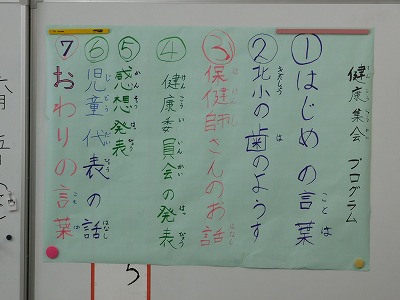 健康集会 プログラム
①はじめの言葉
②北小の歯のようす
③保健師さんのお話
④健康委員会の発表
⑤感想発表
⑥児童代表の話
⑦おわりの言葉